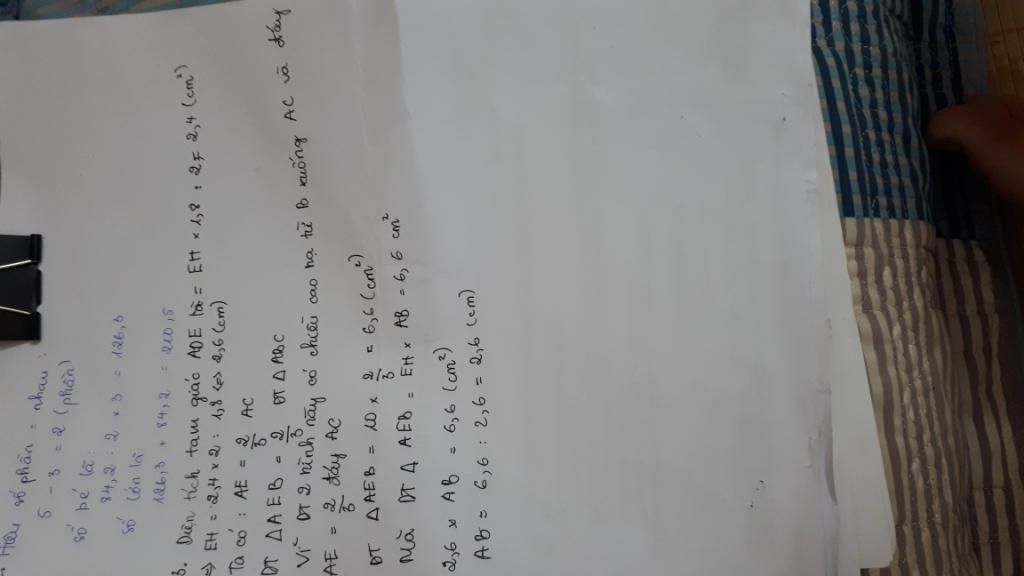 Hiệu số phần = nhau:
5 - 3 = 2 (phần)
số bé là:
84,2 : 2 x 3 = 126,3
số lớn là:
126,3 + 84,2 = 210,5
3. Diện tích tam giác ADE là = EH x 1,8 : 2 = 2,4 (cm²)
⇒ EH = 2,4 x 2 : 1,8 ⇔ 2,6 (cm)
Ta có : AE = 2/3 AC
DT △AEB = 2/3 DT △ABC
Vì DT 2 hình này có chiều cao hạ từ B xuống AC và đáy
AE = 2/3 đáy AC
DT △AEB = 10 x 2/3 = 6,6 (cm²)
Mà DT △AEB = EH x AB = 6,6 cm²
2,6 x AB = 6,6 (cm²)
AB = 6,6 : 2,6 = 2,6 (cm)